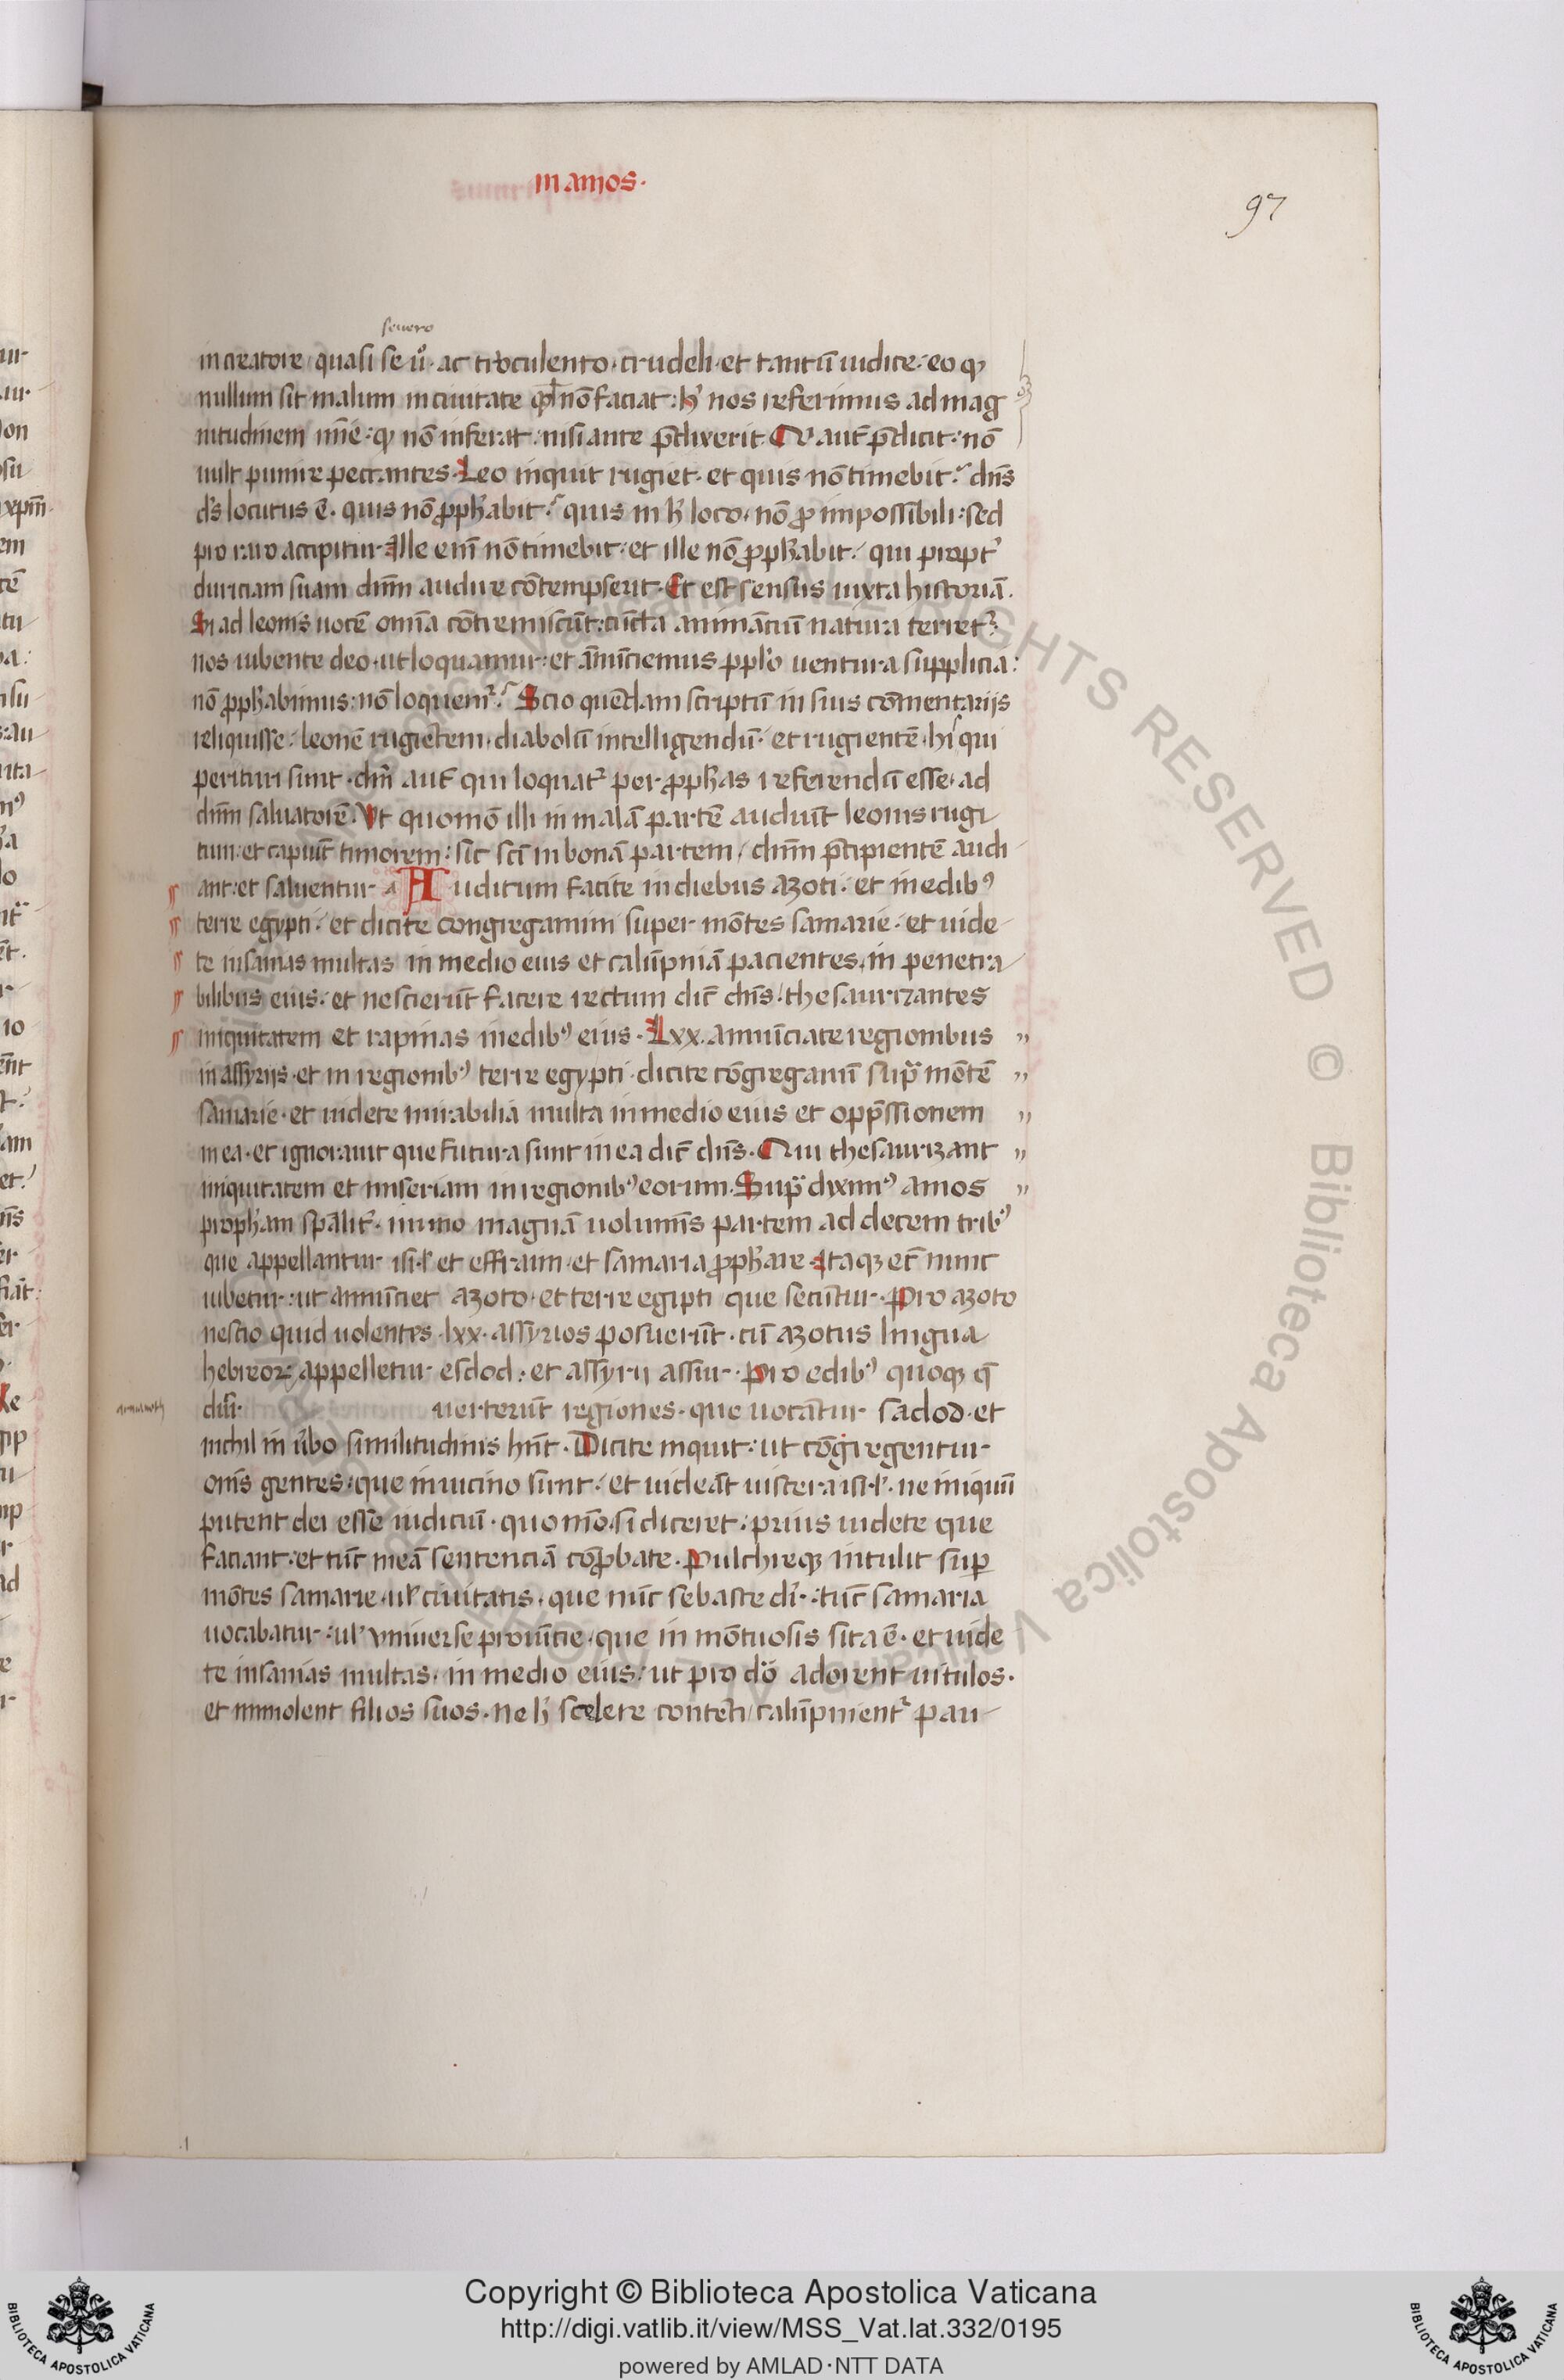 in amos.
97
seuero
in creatore quasi se ũo. ac truculento. crudeli. et tantũ iudice. eo ꝙ
nullum sit malum in ciuitate qđ nõ faciat: h̓ nos referimus ad mag
nitudinem ĩrẽ: ꝙ nõ inferat: nisi ante p̃dixerit. Qui aut̃ p̃dicit: nõ
uult punire peccantes. Leo inquit rugiet. et quis nõ timebit? dñs
d̓s locutus ẽ. quis nõ ꝓph̓abit? quis in h̓ loco. nõ ꝓ impossibili: sed
pro raro accipitur. Ille enĩ nõ timebit. et ille nõ ꝓph̓abit. qui propt̓
duriciam suam dñm audire cõtempserit. Et est sensus iuxta historiã.
Si ad leonis uocẽ omĩa cõtremiscũt: cũcta animãciũ natura terret᷑:
nos iubente deo. ut loquamur: et ãnũciemus pplo uentura supplicia:
nõ ꝓph̓abimus: nõ loquem᷑? Scio quẽdam scriptũ in suis cõmentarijs
reliquisse: leonẽ rugiẽtem. diabolũ intelligendũ. et rugientẽ. hi qui
perituri sunt. dñ̃ aut̃ qui loquat᷑ per ꝓph̓as referendũ esse. ad
dñm saluatorẽ. Vt quomõ illi in malã partẽ audiũt leonis rugi
tum: et capiũt timorem: sic sc̃i in bonã partem / dñm p̃cipientẽ audi
ant: et saluentur. Auditum facite in diebus azoti. et in edibꝰ
terre egypti. et dicite congregamini super mõtes samarie. et uide
te insanias multas in medio eius et calũpniã pacientes. in penetra
bilibus eius. et nescierũt facere rectum dic̃ dñs. thesaurizantes
iniquitatem et rapinas in edibꝰ eius. Lxx. annũciate regionibus ,,
in assyrijs. et in regionibꝰ terre egypti. dicite cõgregamĩ sup̃ mõtẽ ,,
samarie. et uidete mirabilia multa in medio eius et opp̃ssionem ,,
in ea. et ignorauit que futura sunt in ea dic̃ dñs. Qui thesaurizant ,,
iniquitatem et miseriam in regionibꝰ eorum. Sup̃ diximꝰ amos ,,
proph̓am sp̃alit̓. immo magnã uolumĩs partem ad decem tribꝰ
que appellantur isrl̓ et effraim. et samaria ꝓph̓are. Itaqꝫ et̃ nunc
iubetur: ut annũciet azoto. et terre egipti que secũtur. Pro azoto
nescio quid uolentes. lxx. assyrios posuerũt. cũ azotus lingua
hebreoꝝ appelletur esdod: et assyrij assur. Pro edibꝰ quoqꝫ q̃
dr̃i. uerterũt regiones. que uocãtur sadod. et
nichil in ũbo similitudinis hñt. Dicite inquit: ut cõgregentur
om̃s gentes. que in uicino sunt. et uideãt uiscera isrl̓. ne iniquũ
putent dei esse iudiciũ. quo mõ. si diceret: prius uidete que
faciant. et tũc meã sentenciã cõꝓbate. Pulchreqꝫ intulit suꝑ
mõtes samarie. ul̓ ciuitatis. que nũc sebaste dr̃. tũc samaria
uocabatur. ul̓ vniuerse prouĩcie. que in mõtuosis sita ẽ. et uide
te insanias multas. in medio eius: ut pro dõ adorent uitulos.
et immolent filios suos. ne h̓ scelere contẽti calũpnient᷑ pau
Copyright © Biblioteca Apostolica Vaticana
http://digi.vatlib.it/view/MSS_Vat.lat.332/0195
powered by AMLAD·NTT DATA